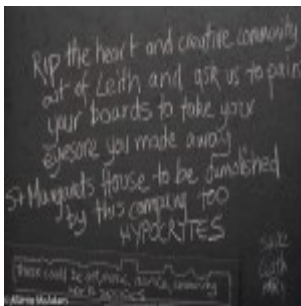 RIP the heart and creative community
out of Leith and ask us to paint
your boards to take your
eyesore you made away
St Margarets House to be demolished
by this company too
HYPOCRITES
there could be art, music, community
SAVE
Leith